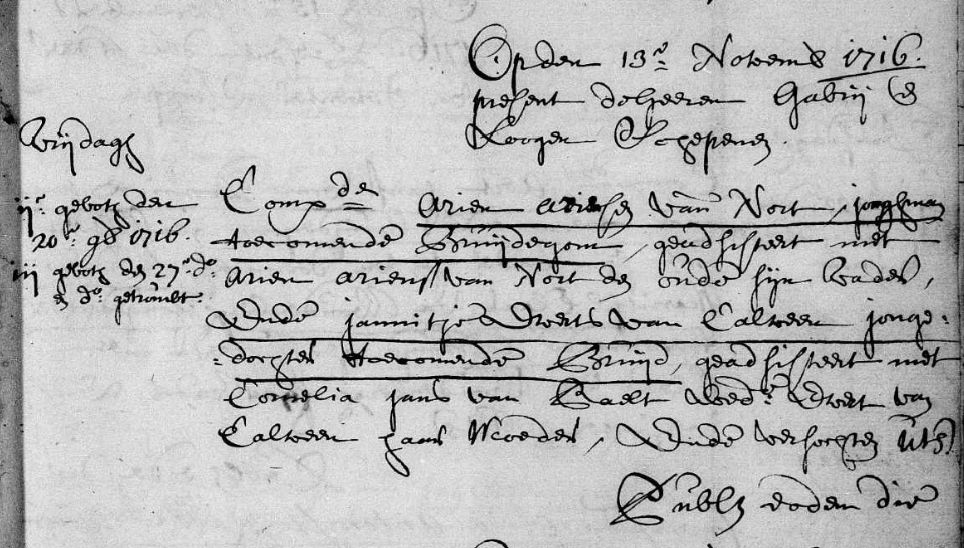 Op den 13.e Novemb 1716.
present de heeren Gabrij &
Rooyen Schepenen.
Vrijdagh
ij.e gebodt den
20.e 9b 1716.
iij gebodt den 27.e d.o
en d.o getrouwt.
Comp.de Arien Ariensen van Nort, jonghman
toecomende Bruijdegom, geadsisteert met
Arien Ariens van Nort den oude sijn vader,
Ende Jannitje Everts van Calveen jonge=
=dochter toecomende Bruijd, geadsisteert met
Cornelia Jans van Baelt Wed.e Evert van
Calveen haar Moeder, Ende versochten uts.
Publ. eodem die